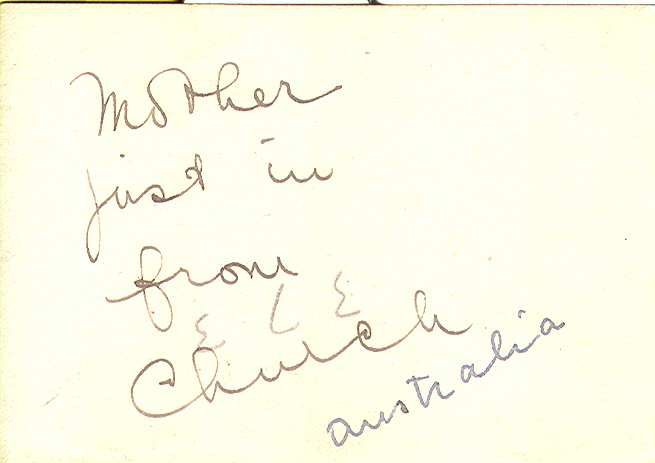 Mother
just in
from
ELE
Church
australia